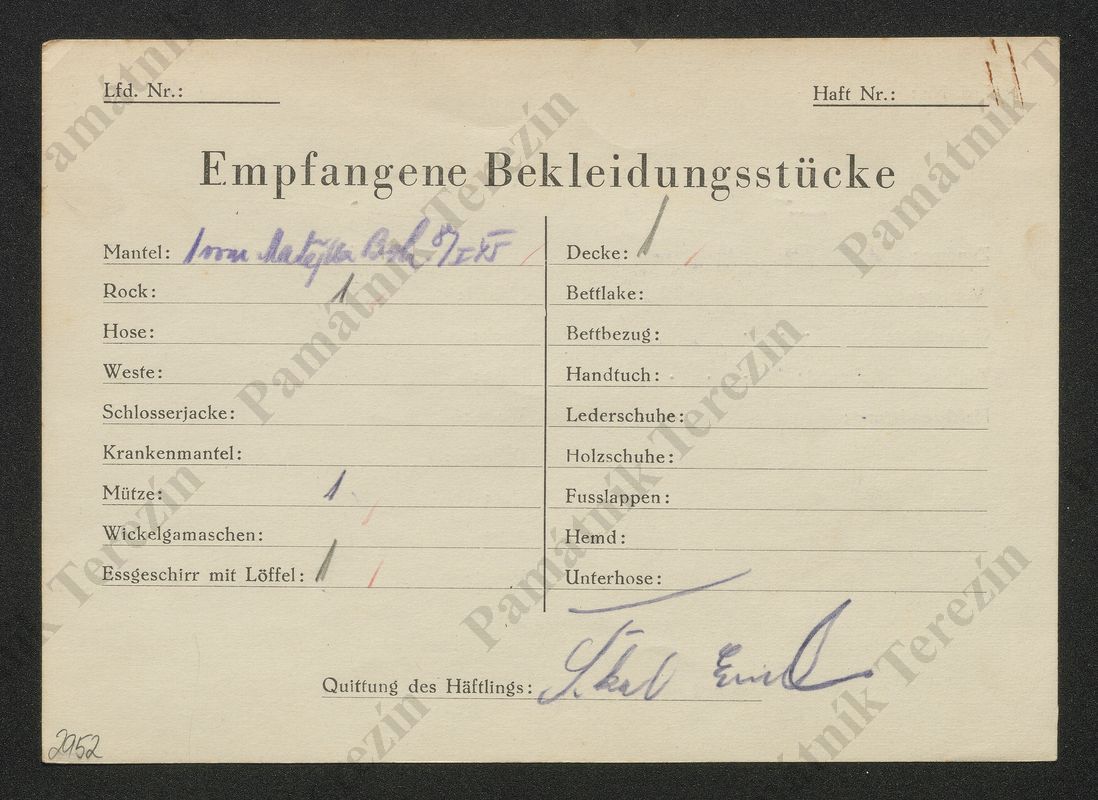 Lfd. Nr.:
Haft Nr.:
Empfangene Bekleidungsstücke
Mantel: 1 von
Rock: 1
Hose:
Weste:
Schlosserjacke:
Krankenmantel:
Mütze: 1
Wickelgamaschen:
Essgeschirr mit Löffel: 1
Decke: 1
Bettlake:
Bettbezug:
Handtuch:
Lederschuhe:
Holzschuhe:
Fusslappen:
Hemd:
Unterhose:
Quittung des Häftlings:
2952
Památník Terezín